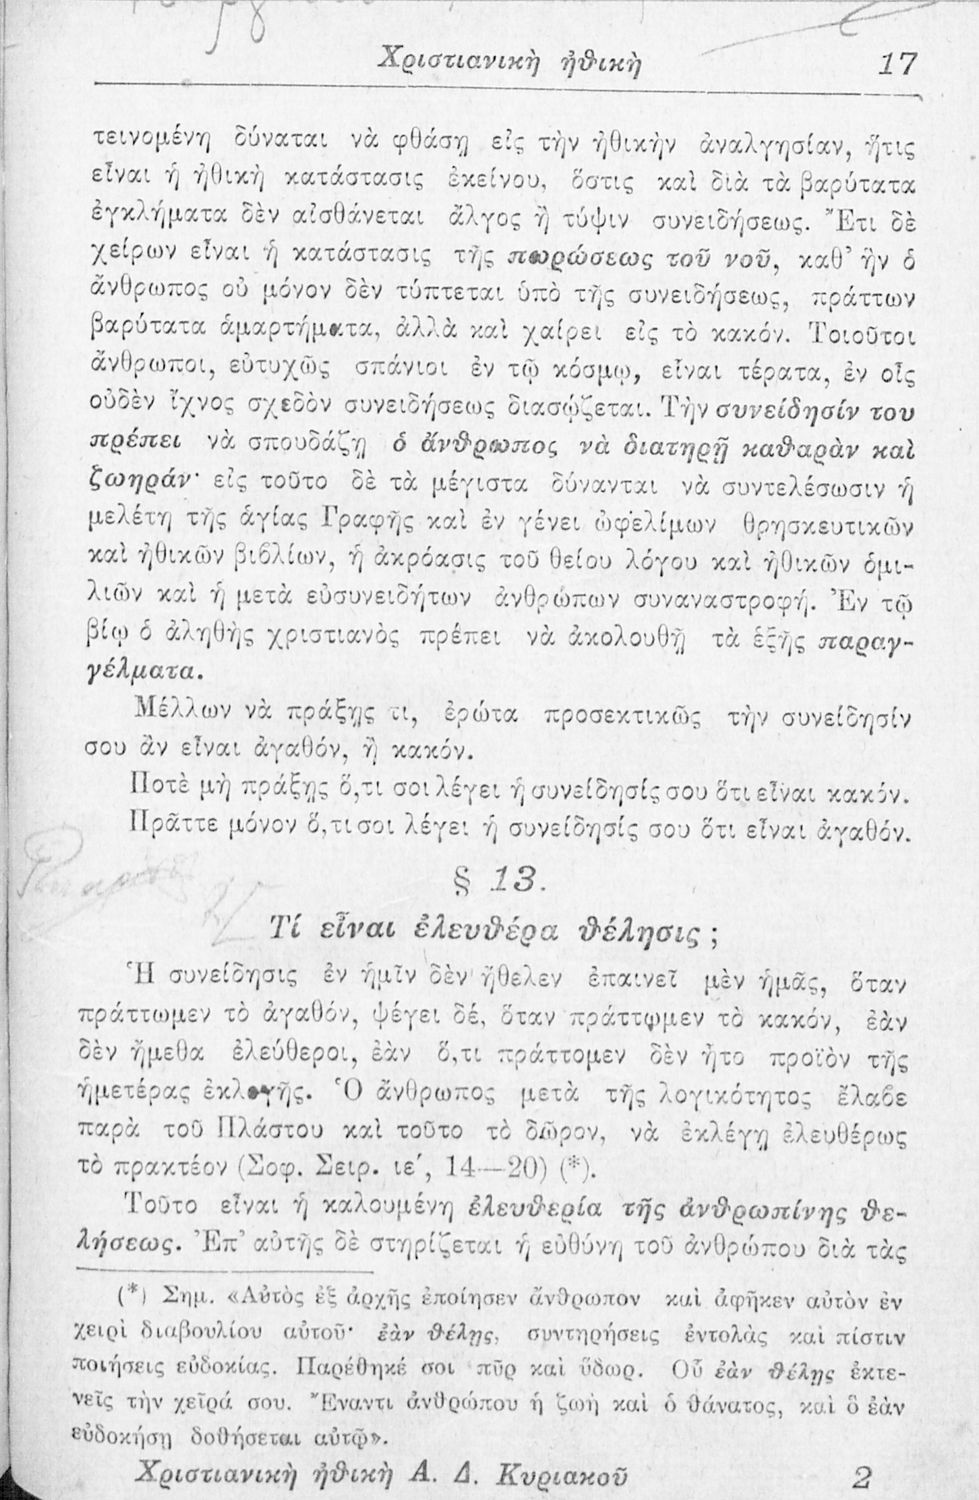 Χριστιανικὴ ἠθικὴ 17
τεινομένη δύναται νὰ φθάσῃ εἰς τὴν ἠθικὴν ἀναλγησίαν, ἥτις
εἶναι ἡ ἠθικὴ κατάστασις ἐκείνου, ὅστις καὶ διὰ τὰ βαρύτατα
ἐγκλήματα δὲν αἰσθάνεται ἄλγος ἢ τύψιν συνειδήσεως. Ἔτι δὲ
χείρων εἶναι ἡ κατάστασις τῆς πωρώσεως τοῦ νοῦ, καθ’ ἣν ὁ
ἄνθρωπος οὐ μόνον δὲν τύπτεται ὑπὸ τῆς συνειδήσεως, πράττων
βαρύτατα ἁμαρτήματα, ἀλλὰ καὶ χαίρει εἰς τὸ κακόν. Τοιοῦτοι
ἄνθρωποι, εὐτυχῶς σπάνιοι ἐν τῷ κόσμῳ, εἶναι τέρατα, ἐν οἷς
οὐδὲν ἴχνος σχεδὸν συνειδήσεως διασῴζεται. Τὴν συνείδησίν του
πρέπει νὰ σπουδάζῃ ὁ ἄνθρωπος νὰ διατηρῇ καθαρὰν καὶ
ζωηράν· εἰς τοῦτο δὲ τὰ μέγιστα δύνανται νὰ συντελέσωσιν ἡ
μελέτη τῆς ἁγίας Γραφῆς καὶ ἐν γένει ὠφελίμων θρησκευτικῶν
καὶ ἠθικῶν βιβλίων, ἡ ἀκρόασις τοῦ θείου λόγου καὶ ἠθικῶν ὁμι-
λιῶν καὶ ἡ μετὰ εὐσυνειδήτων ἀνθρώπων συναναστροφή. Ἐν τῷ
βίῳ ὁ ἀληθὴς χριστιανὸς πρέπει νὰ ἀκολουθῇ τὰ ἑξῆς παραγ-
γέλματα.
Μέλλων νὰ πράξῃς τι, ἐρώτα προσεκτικῶς τὴν συνείδησίν
σου ἂν εἶναι ἀγαθόν, ἢ κακόν.
Ποτὲ μὴ πράξῃς ὅ,τι σοι λέγει ἡ συνείδησίς σου ὅτι εἶναι κακόν.
Πρᾶττε μόνον ὅ,τι σοι λέγει ἡ συνείδησίς σου ὅτι εἶναι ἀγαθόν.
§ 13.
Τί εἶναι ἐλευθέρα θέλησις ;
Ἡ συνείδησις ἐν ἡμῖν δὲν ἤθελεν ἐπαινεῖ μὲν ἡμᾶς, ὅταν
πράττωμεν τὸ ἀγαθόν, ψέγει δέ, ὅταν πράττωμεν τὸ κακόν, ἐὰν
δὲν ἤμεθα ἐλεύθεροι, ἐὰν ὅ,τι πράττομεν δὲν ἦτο προϊὸν τῆς
ἡμετέρας ἐκλογῆς. Ὁ ἄνθρωπος μετὰ τῆς λογικότητος ἔλαβε
παρὰ τοῦ Πλάστου καὶ τοῦτο τὸ δῶρον, νὰ ἐκλέγῃ ἐλευθέρως
τὸ πρακτέον (Σοφ. Σειρ. ιε΄, 14—20) (*).
Τοῦτο εἶναι ἡ καλουμένη ἐλευθερία τῆς ἀνθρωπίνης θε-
λήσεως. Ἐπ’ αὐτῆς δὲ στηρίζεται ἡ εὐθύνη τοῦ ἀνθρώπου διὰ τὰς
(*) Σημ. «Αὐτὸς ἐξ ἀρχῆς ἐποίησεν ἄνθρωπον καὶ ἀφῆκεν αὐτὸν ἐν
χειρὶ διαβουλίου αὐτοῦ· ἐὰν θέλῃς, συντηρήσεις ἐντολὰς καὶ πίστιν
ποιήσεις εὐδοκίας. Παρέθηκέ σοι πῦρ καὶ ὕδωρ. Οὗ ἐὰν θέλῃς ἐκτε-
νεῖς τὴν χεῖρά σου. Ἔναντι ἀνθρώπου ἡ ζωὴ καὶ ὁ θάνατος, καὶ ὃ ἐὰν
εὐδοκήσῃ δοθήσεται αὐτῷ».
Χριστιανικὴ ἠθικὴ Α. Δ. Κυριακοῦ 2